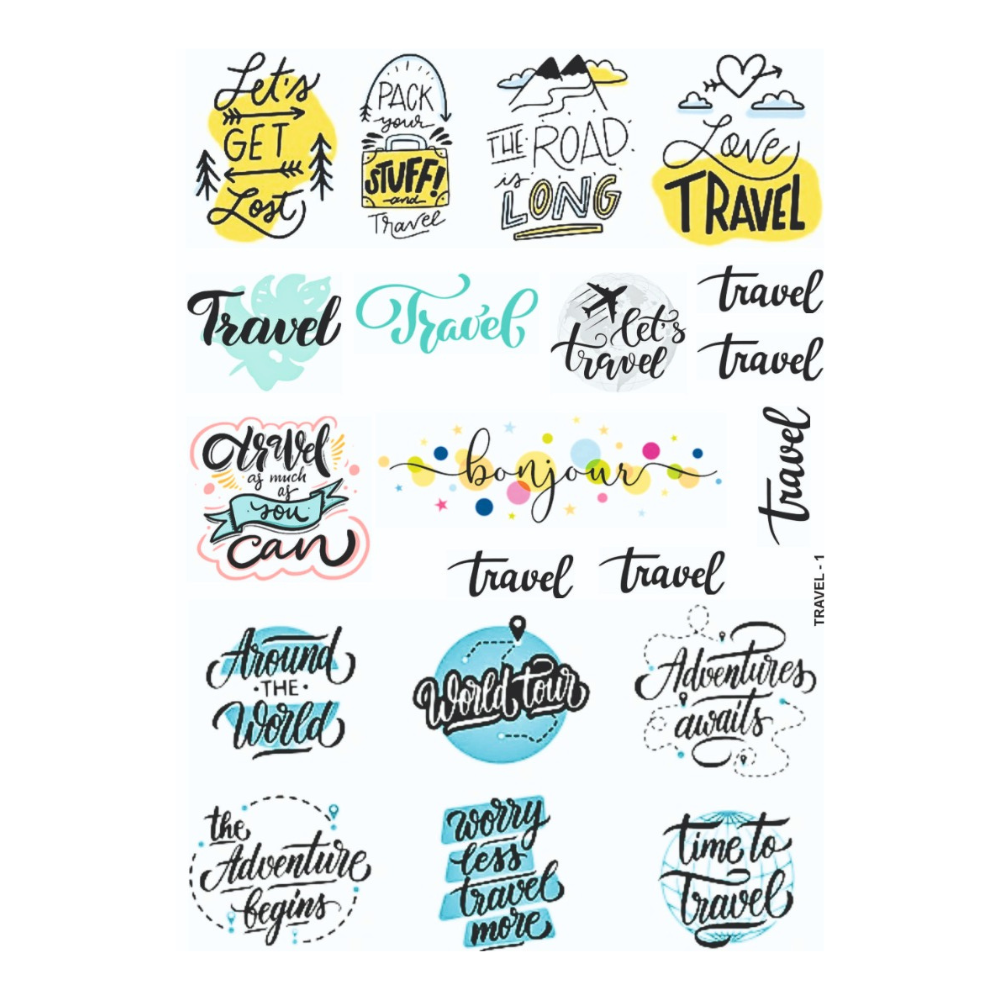 Let's
GET
Lost
PACK
your
STUFF!
and
Travel
THE ROAD
is
LONG
Love
TRAVEL
Travel
Travel
let's
travel
travel
travel
travel
as much
as
you
can
bonjour
travel
travel
travel
TRAVEL - 1
Around
·THE·
World
World tour
Adventures
awaits
the
Adventure
begins
worry
less
travel
more
time to
Travel